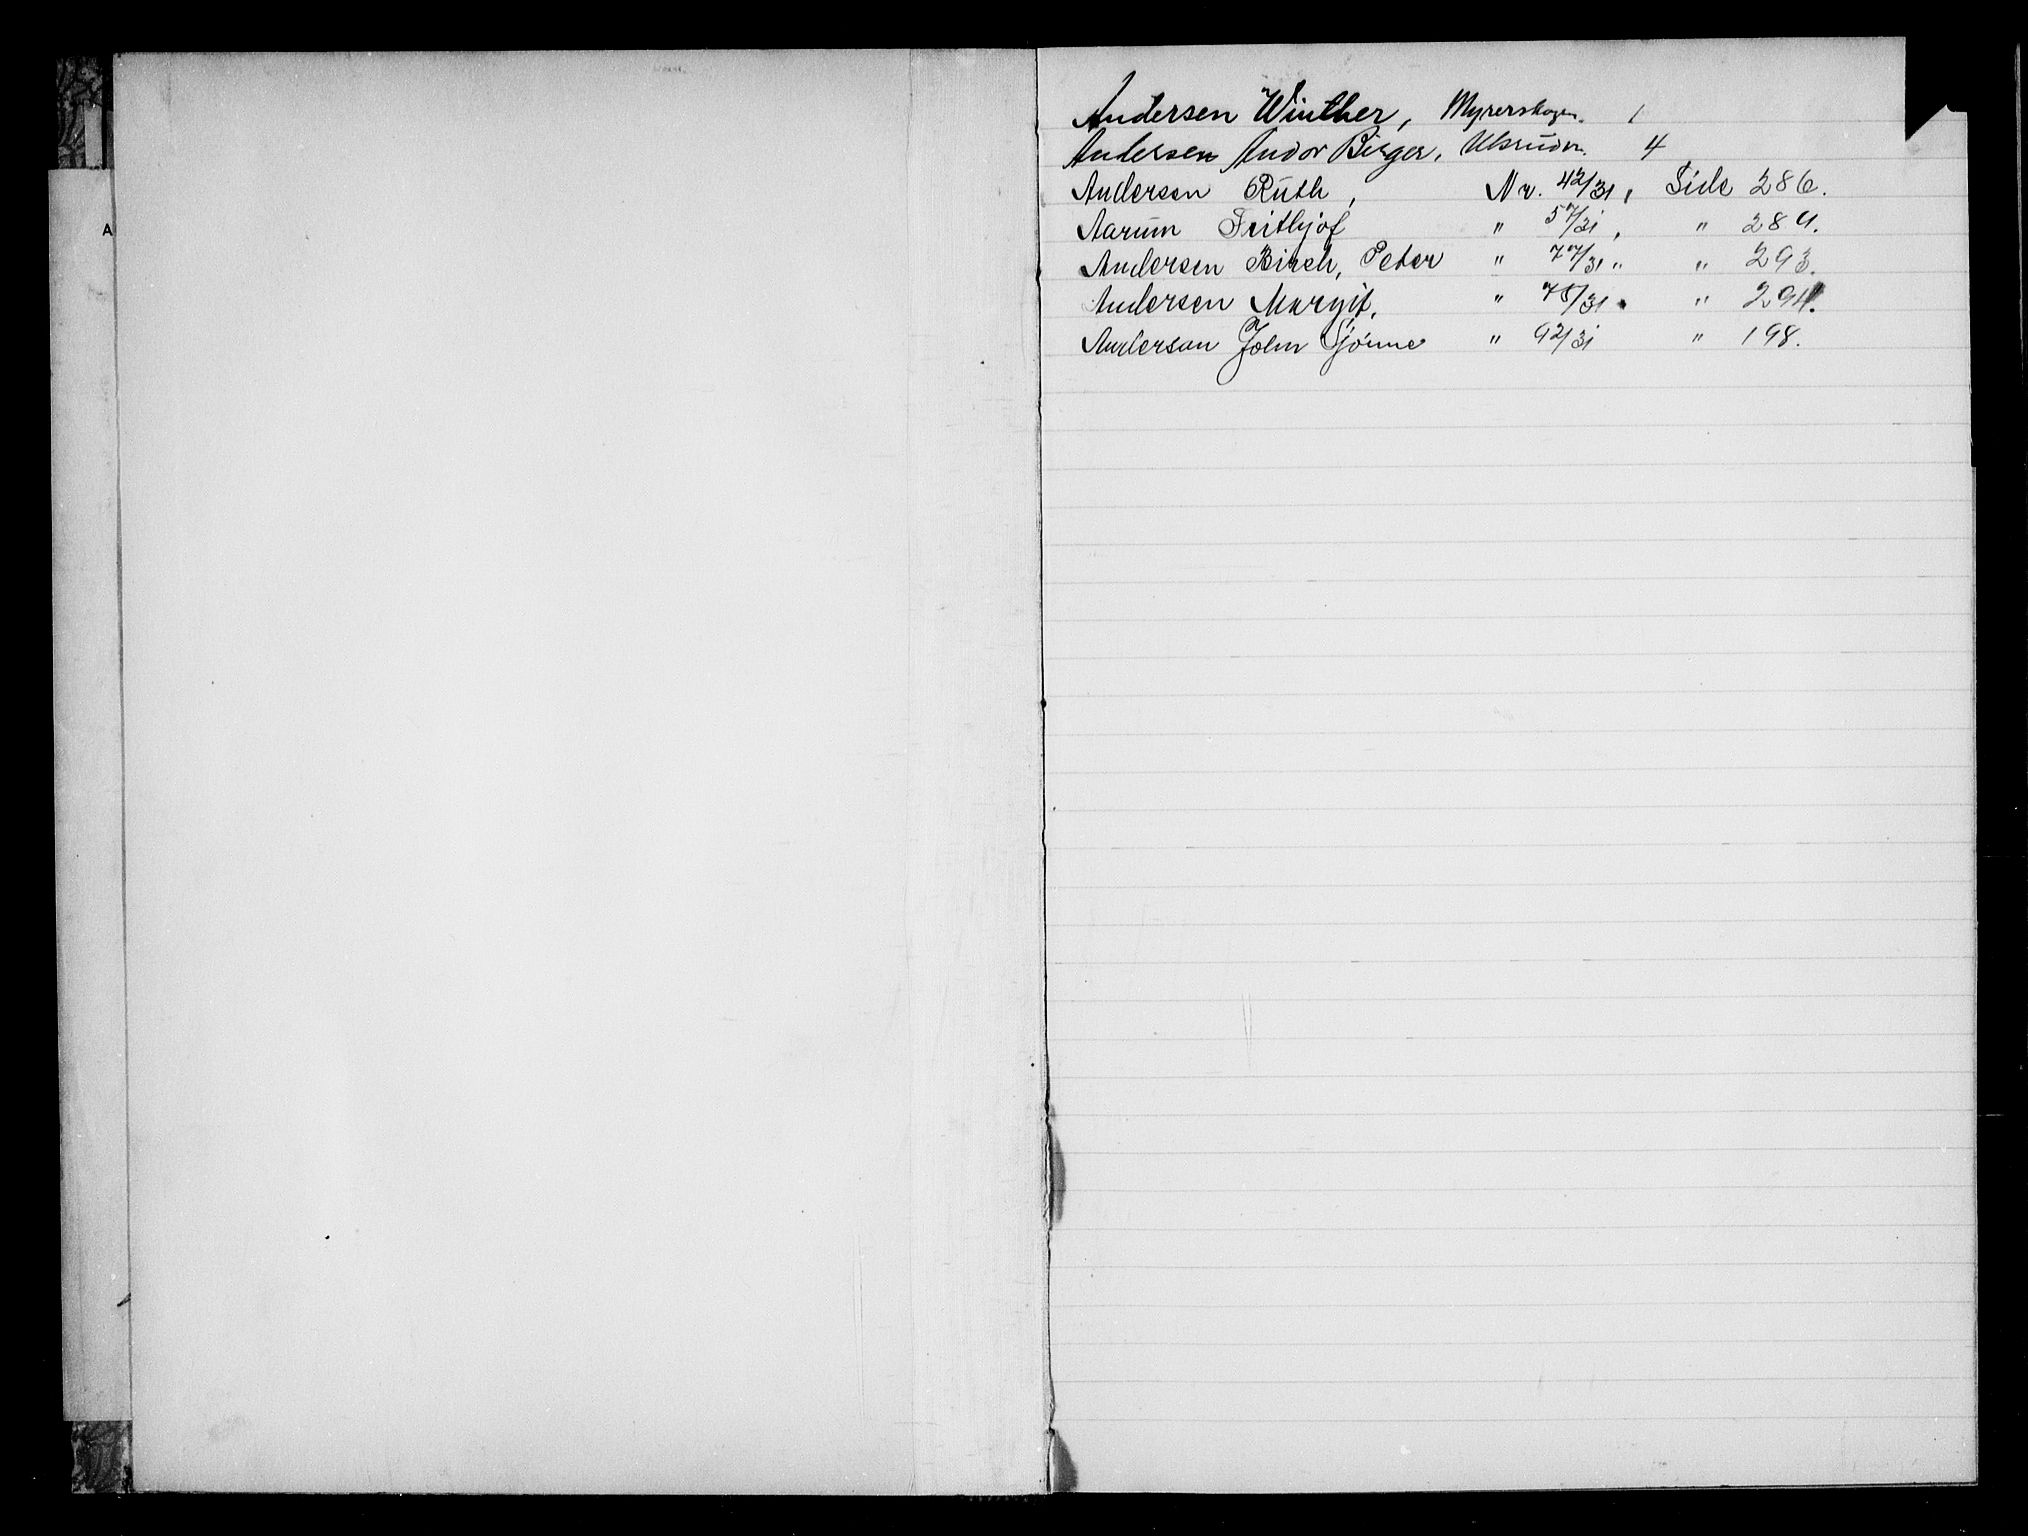 A
Andersen Winther, Myrerskogen. 1
Andersen Andor Birger, Ulsrudvn. 4
Andersen Ruth, Nr. 42/31, Side 286.
Aarum Frithjof " 57/31, " 289.
Andersen Birch, Peter " 77/31 " " 293.
Andersen Margit, " 78/31. " 294.
Anderson John Sjönne " 92/31 " 198.